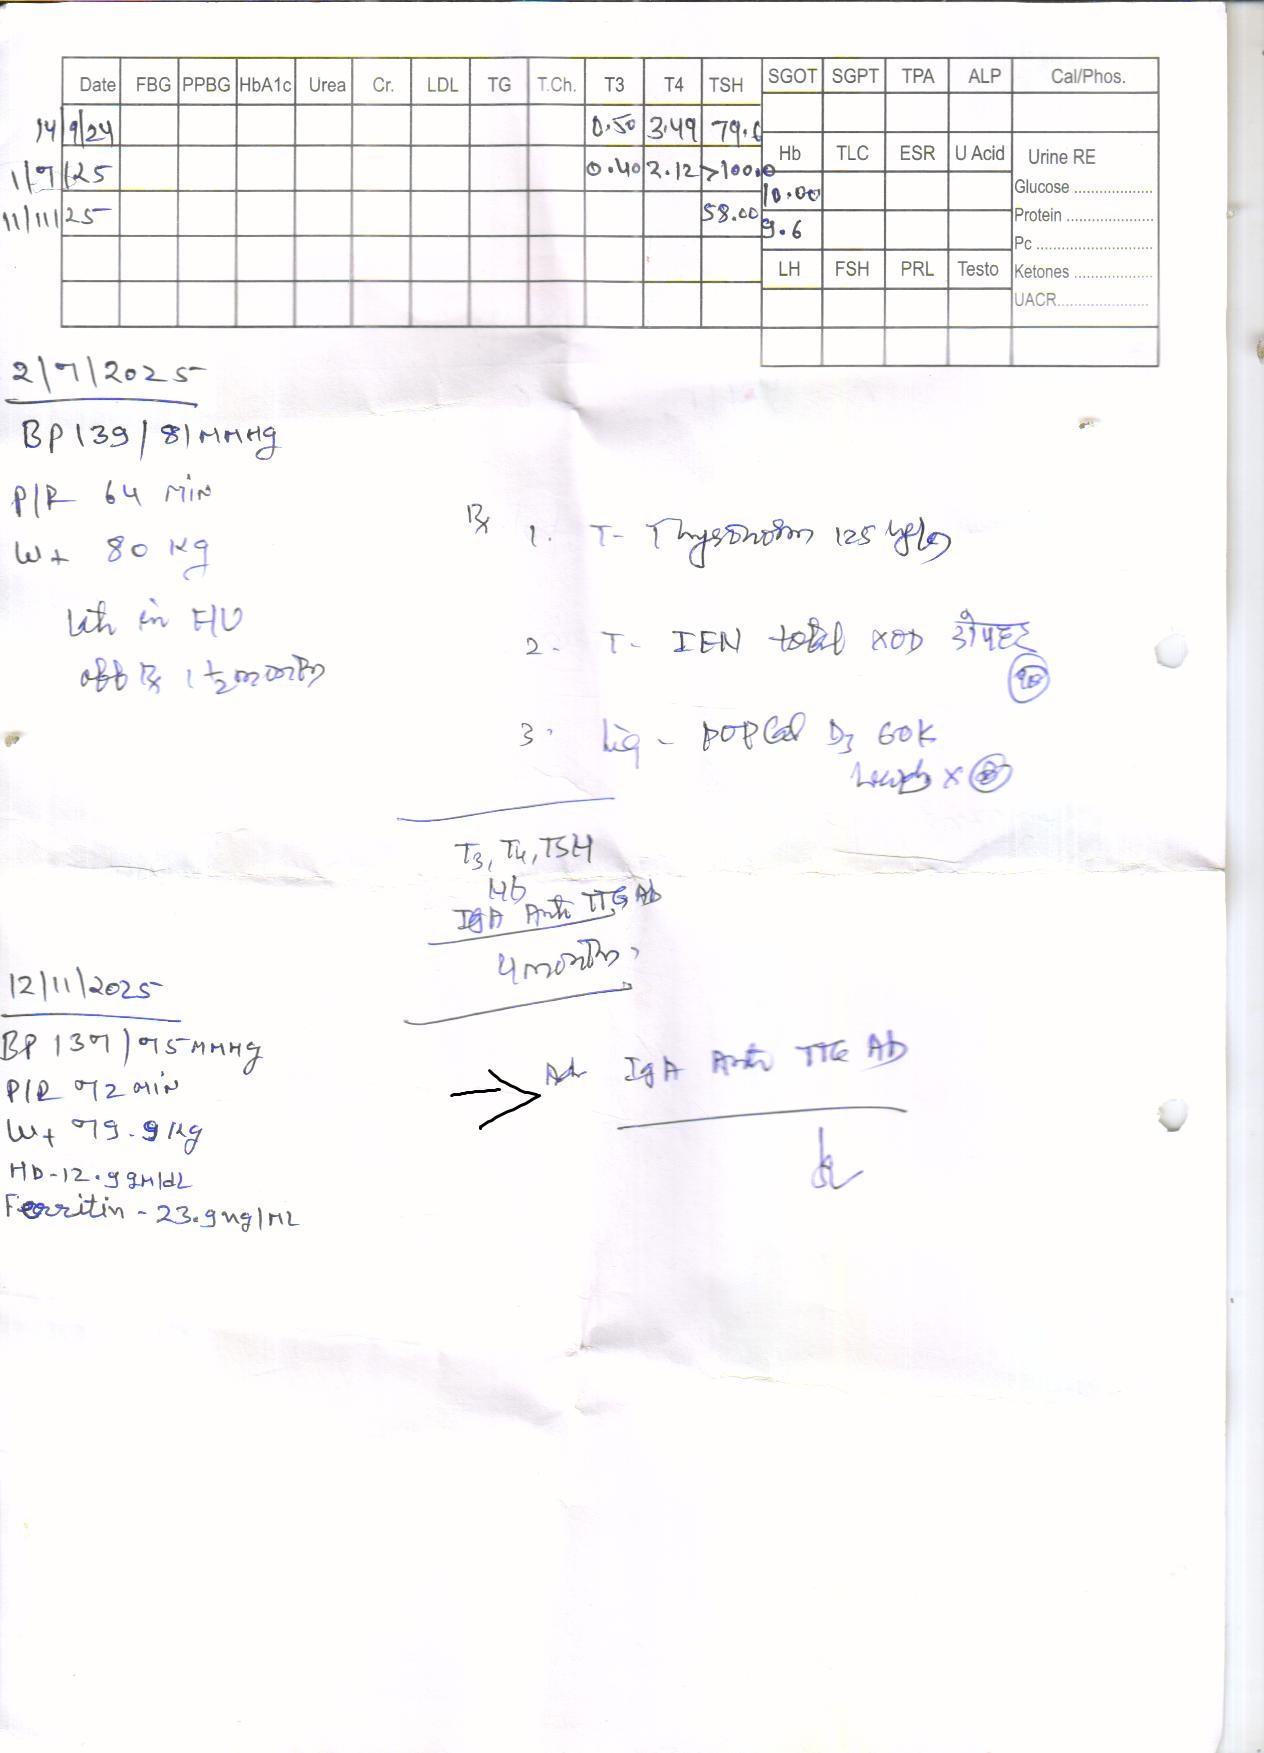 Date FBG PPBG HbA1c Urea Cr. LDL TG T.Ch. T3 T4 TSH SGOT SGPT TPA ALP Cal/Phos.
14/9/24 0.50 3.49 79.
1/7/25 0.40 2.12 >100.0
Hb TLC ESR U Acid Urine RE
10.00 Glucose
11/11/25 58.00
9.6 Protein
Pc
LH FSH PRL Testo Ketones
UACR
2/7/2025
BP 139/81 MMHg
P/R 64 MIN
Wt 80 Kg
in F/U
off Rx 1 1/2 months
Rx 1. T- Thyronorm 125
2. T- IEN total XOD दोपहर
3. Liq - POPCal D3 60K
T3, T4, TSH
Hb
IgA Anti TTG Ab
4 months
12/11/2025
BP 137/75 MMHg
P/R 72 MIN
Wt 79.9 Kg
Hb-12.9 gm/dL
Ferritin - 23.9 ng/ML
Adv IgA Anti TTG Ab